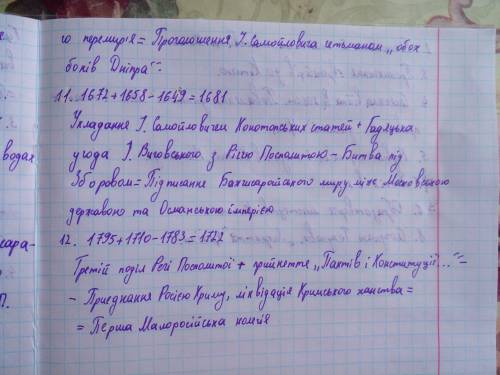 го перемир'я = Проголошення І. Самойловича гетьманом „обох
боків Дніпра".
11. 1672 + 1658 - 1649 = 1681
Укладання І. Самойловичем Конотопських статей + Гадяцька
угода І. Виговського з Річчю Посполитою - Битва під
Зборовом = Підписання Бахчисарайського миру між Московською
державою та Османською імперією
12. 1795 + 1710 - 1783 = 1722
Третій поділ Речі Посполитої + прийняття „Пактів і Конституції..." -
- Приєднання Росією Криму, ліквідація Кримського ханства =
= Перша Малоросійська колегія
водах
сара-